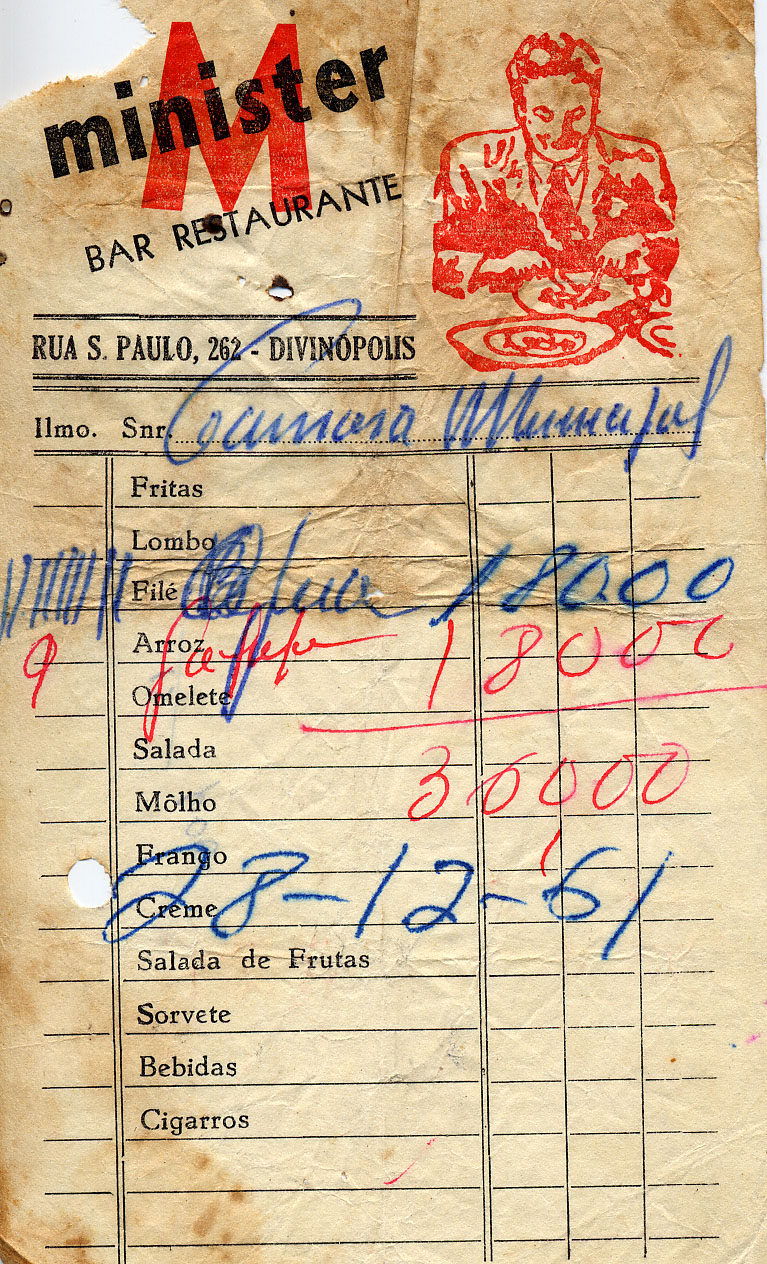 M
minister
BAR RESTAURANTE
RUA S. PAULO, 262 - DIVINÓPOLIS
Ilmo. Snr. Camara Municipal
Fritas
Lombo
Filé 18000
Arroz
9 18000
Omelete
Salada
Môlho 36000
Frango
28-12-61
Creme
Salada de Frutas
Sorvete
Bebidas
Cigarros